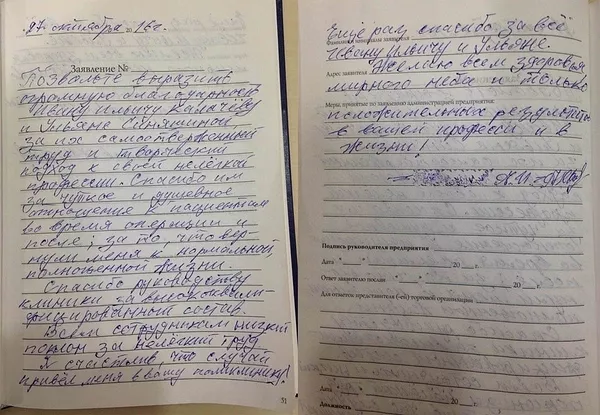 27 октября 16г.
Заявление №
Позвольте выразить
огромную благодарность
Ивану Ильичу Калачёву
и Ульяне Синяшиной
за их самоотверженный
труд и творческий
подход к своей нелёгкой
профессии. Спасибо им
за чуткое и душевное
отношение к пациентам
во время операции и
после, за то, что вер-
нули меня к нормальной,
полноценной жизни.
Спасибо руководству
клиники за высококвали-
фицированный состав.
Всем сотрудникам низкий
поклон за нелёгкий труд
Я счастлив что случай
привёл меня в вашу поликлинику!
51
Ещё раз спасибо за всё
Фамилия, имя заявителя
Ивану Ильичу и Ульяне.
Адрес заявителя Желаю всем здоровья
мирного неба и только
Меры, принятые по заявлению администрацией предприятия:
положительных результатов
в вашей професси и в
жизни!
А.И.
Подпись руководителя предприятия
Дата "___" 20 г.
Ответ заявителю послан "___" 20 г.
Для отметок представителя (-ей) торговой организации
Дата 20 г.
Должность